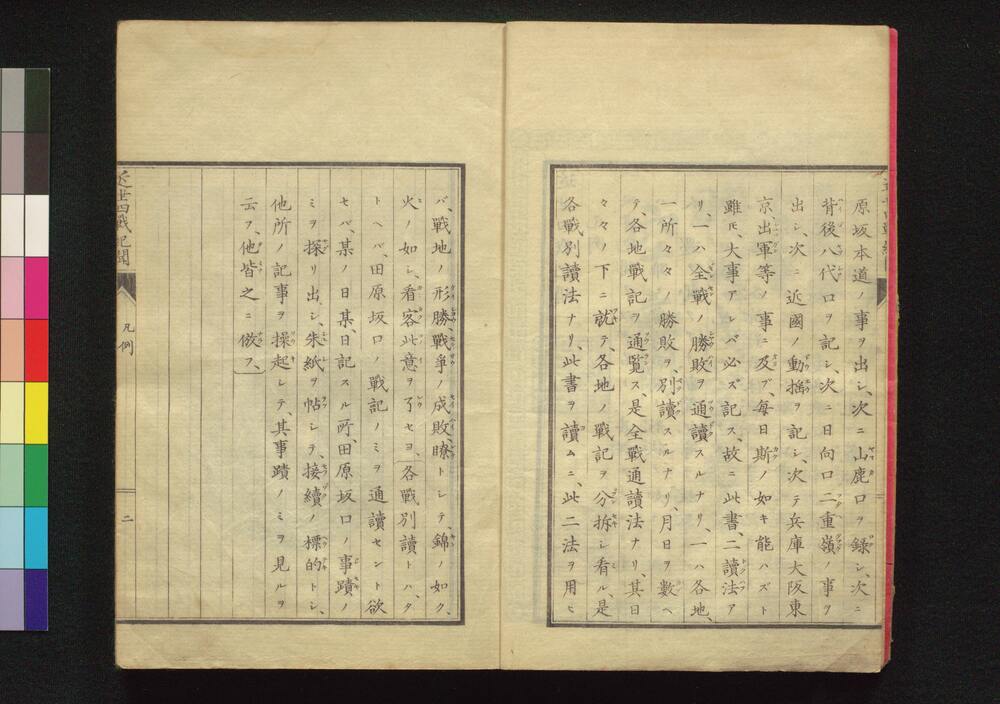 原坂本道ノ事ヲ出シ、次ニ山鹿口ヲ録シ次ニ
背後八代口ヲ記シ、次ニ日向口二重嶺ノ事ヲ
出シ、次ニ近國ノ動搖ヲ記シ、次テ兵庫大阪東
京、出軍等ノ事ニ及ブ、毎日斯ノ如キ能ハズト
雖𪜈、大事アレバ必ズ記ス、故ニ此書、二讀法ア
リ、一ハ全戰ノ勝敗ヲ通讀スルナリ、一ハ各地、
一所々々ノ勝敗ヲ、別讀スルナリ、月日ヲ數ヘ
テ、各地戰記ヲ通覧ス、是全戰通讀法ナリ、其日
々々ノ下ニ就テ、各地ノ戰記ヲ分拆シ看ル、是
各戰別讀法ナリ、此書ヲ讀ムニ、此二法ヲ用ヒ
バ、戰地ノ形勝、戰爭ノ成敗、瞭トシテ、錦ノ如ク、
火ノ如シ、看客此意ヲ了セヨ、各戰別讀トハ、タ
トヘバ、田原坂口ノ戰記ノミヲ通讀セント欲
セバ、某ノ日某、日記スル所、田原坂口ノ事蹟ノ
ミヲ探リ出シ、朱紙ヲ帖シテ、接續ノ標的トシ、
他所ノ記事ヲ操起シテ、其事蹟ノミヲ見ルヲ
云フ、他皆之ニ倣フ、
近世四戰紀聞
凡例
二